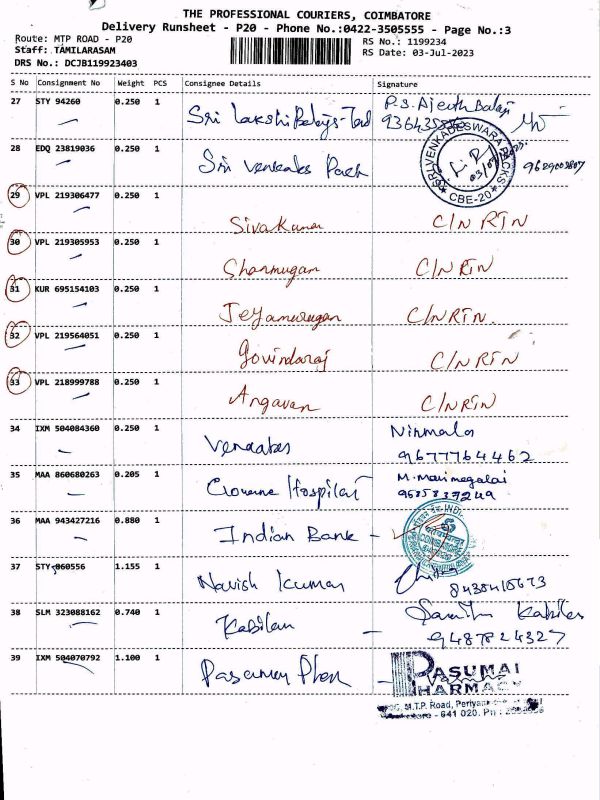 THE PROFESSIONAL COURIERS, COIMBATORE
Delivery Runsheet - P20 - Phone No.:0422-3505555 - Page No.:3
Route: MTP ROAD - P20
RS No.: 1199234
Staff: TAMILARASAM
RS Date: 03-Jul-2023
DRS No.: DCJB119923403
S No Consignment No Weight PCS Consignee Details Signature
27 STY 94260 0.250 1 Sri P.S. Ajeeth Balaji
28 EDQ 23819036 0.250 1 Sri Venkates Pack 9629002807
SRI VENKADESWARA PACKS
CBE-20
29 VPL 219306477 0.250 1 Sivakumar C/N RTN
30 VPL 219305953 0.250 1 Shanmugan C/N RTN
31 KUR 695154103 0.250 1 Jeyamurugan C/N RTN.
32 VPL 219564051 0.250 1 Govindaraj C/N RTN
33 VPL 218999788 0.250 1 Angavan C/N RTN
34 IXM 504084360 0.250 1 Venkates Nirmala
9677764462
35 MAA 860680263 0.205 1 Hospital M. Manimegalai
36 MAA 943427216 0.880 1 Indian Bank -
37 STY 860556 1.155 1 Navish Kumar
8438415673
38 SLM 323088162 0.740 1 Kabilan - Kabilan
9487824327
39 IXM 504070792 1.100 1 - PASUMAI
PHARMACY
M.T.P. Road,
- 641 020.